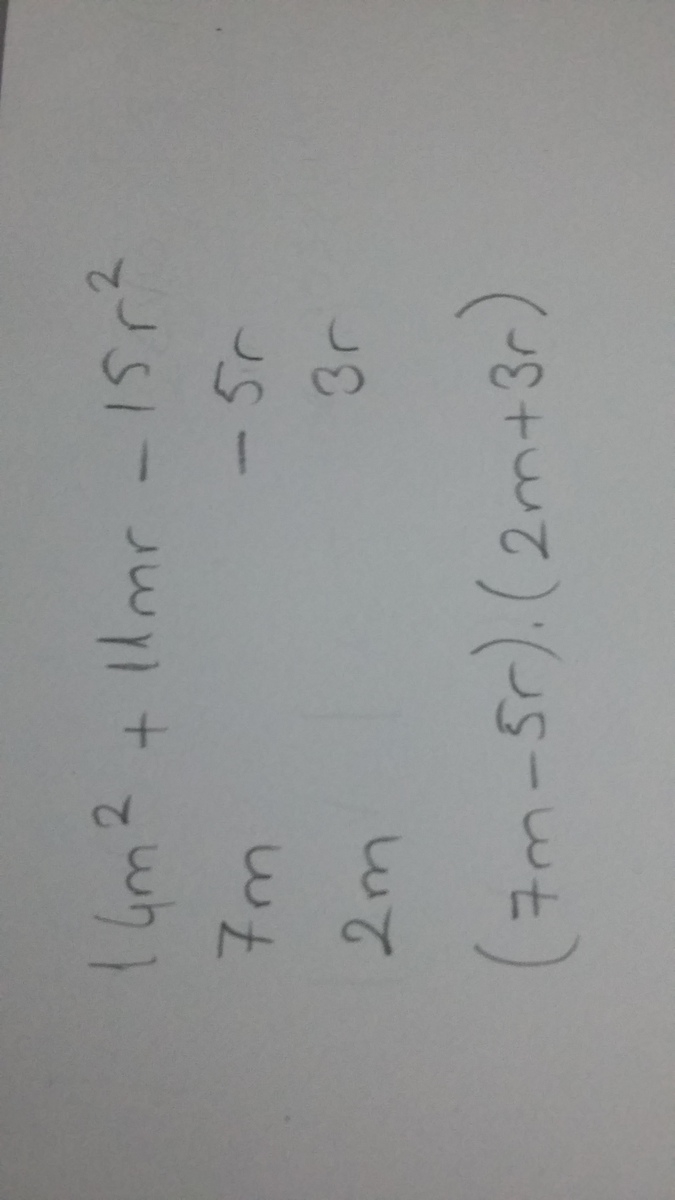 14m² + 11mr - 15r²
7m - 5r
2m 3r
(7m-5r).(2m+3r)